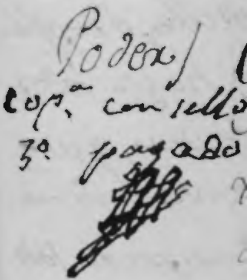 Poder /
cop.ª con sello
3º pagado